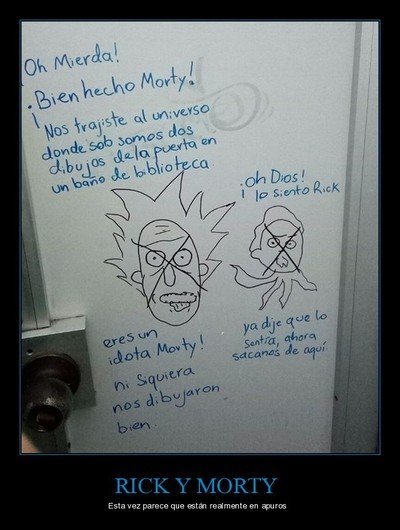 Oh Mierda!
¡Bien hecho Morty!
¡Nos trajiste al universo
donde solo somos dos
dibujos de la puerta en
un baño de biblioteca.
¡oh Dios!
¡lo siento Rick
eres un
idota Morty!
ni siquiera
nos dibujaron
bien.
ya dije que lo
sentía, ahora
sacanos de aquí.
RICK Y MORTY
Esta vez parece que están realmente en apuros